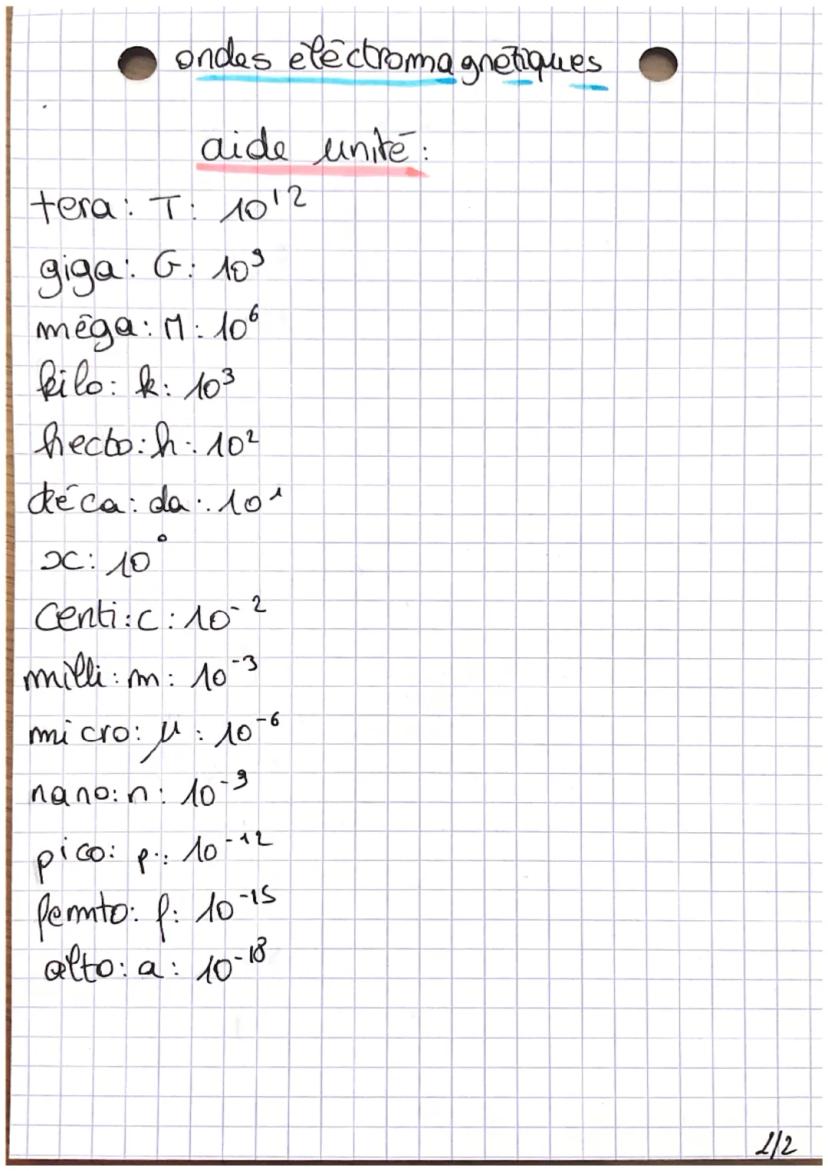 ondes electromagnétiques
aide unité:
tera: T: 10¹²
giga: G: 10⁹
méga: M: 10⁶
kilo: k: 10³
hecto: h: 10²
déca: da: 10¹
x: 10⁰
centi: c: 10⁻²
milli: m: 10⁻³
micro: μ: 10⁻⁶
nano: n: 10⁻⁹
pico: p: 10⁻¹²
femto: f: 10⁻¹⁵
alto: a: 10⁻¹⁸
1/2